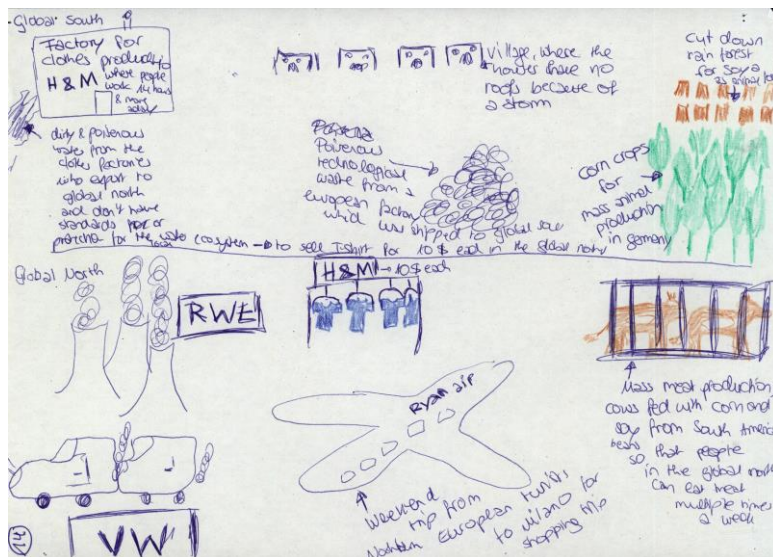 Global South
Factory for
clothes productio
H&M where people
work 14 hours
& more
aday
dirty & poiserous
water from the
clothes factories
who export to
global north
and don't have
standards for or
protection for the water ecosystem → to sell T-shirt for 10$ each in the global north
village, where the
houses have no
roofs because of
a storm
Poiserous
technological
waste from a
european factory
which was shipped to global sou
cut down
rain forest
for soya
as animal foo
corn crops
for
mass animal
production
in germany
Global North
RWE
H&M → 10$ each
Ryan air
VW
14
Weekend
trip from
Northern European turists
to Milano for
shopping trip
Mass meat production
cows fed with corn and
soy from South America
so that people
in the global north
can eat meat
multiple times
a week